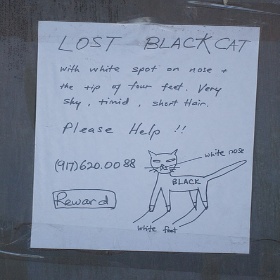 LOST BLACK CAT
with white spot on nose +
the tip of four feet. Very
shy, timid, short Hair.
Please Help !!
(917)620.0088
white nose
BLACK
Reward
white feet